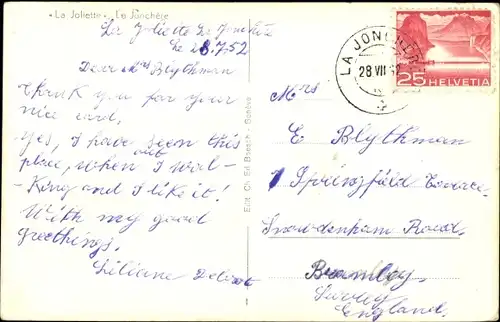 «La Joliette» La Jonchère
La Joliette La Jonchère
Le 28.7.52
Dear Mrs Blythman
Thank you for your
nice card,
Yes, I have seen this
place, when I wal-
out
-King and I like it!
With my good
greethings.
Liliane
Edit. Ch. Ed. Genève
LA JONCHERE
28.VII.52
25 HELVETIA
Mrs
E Blythman
1 Springfield Terrace.
Snowdenham Road.
Bramley.
Surrey
England.